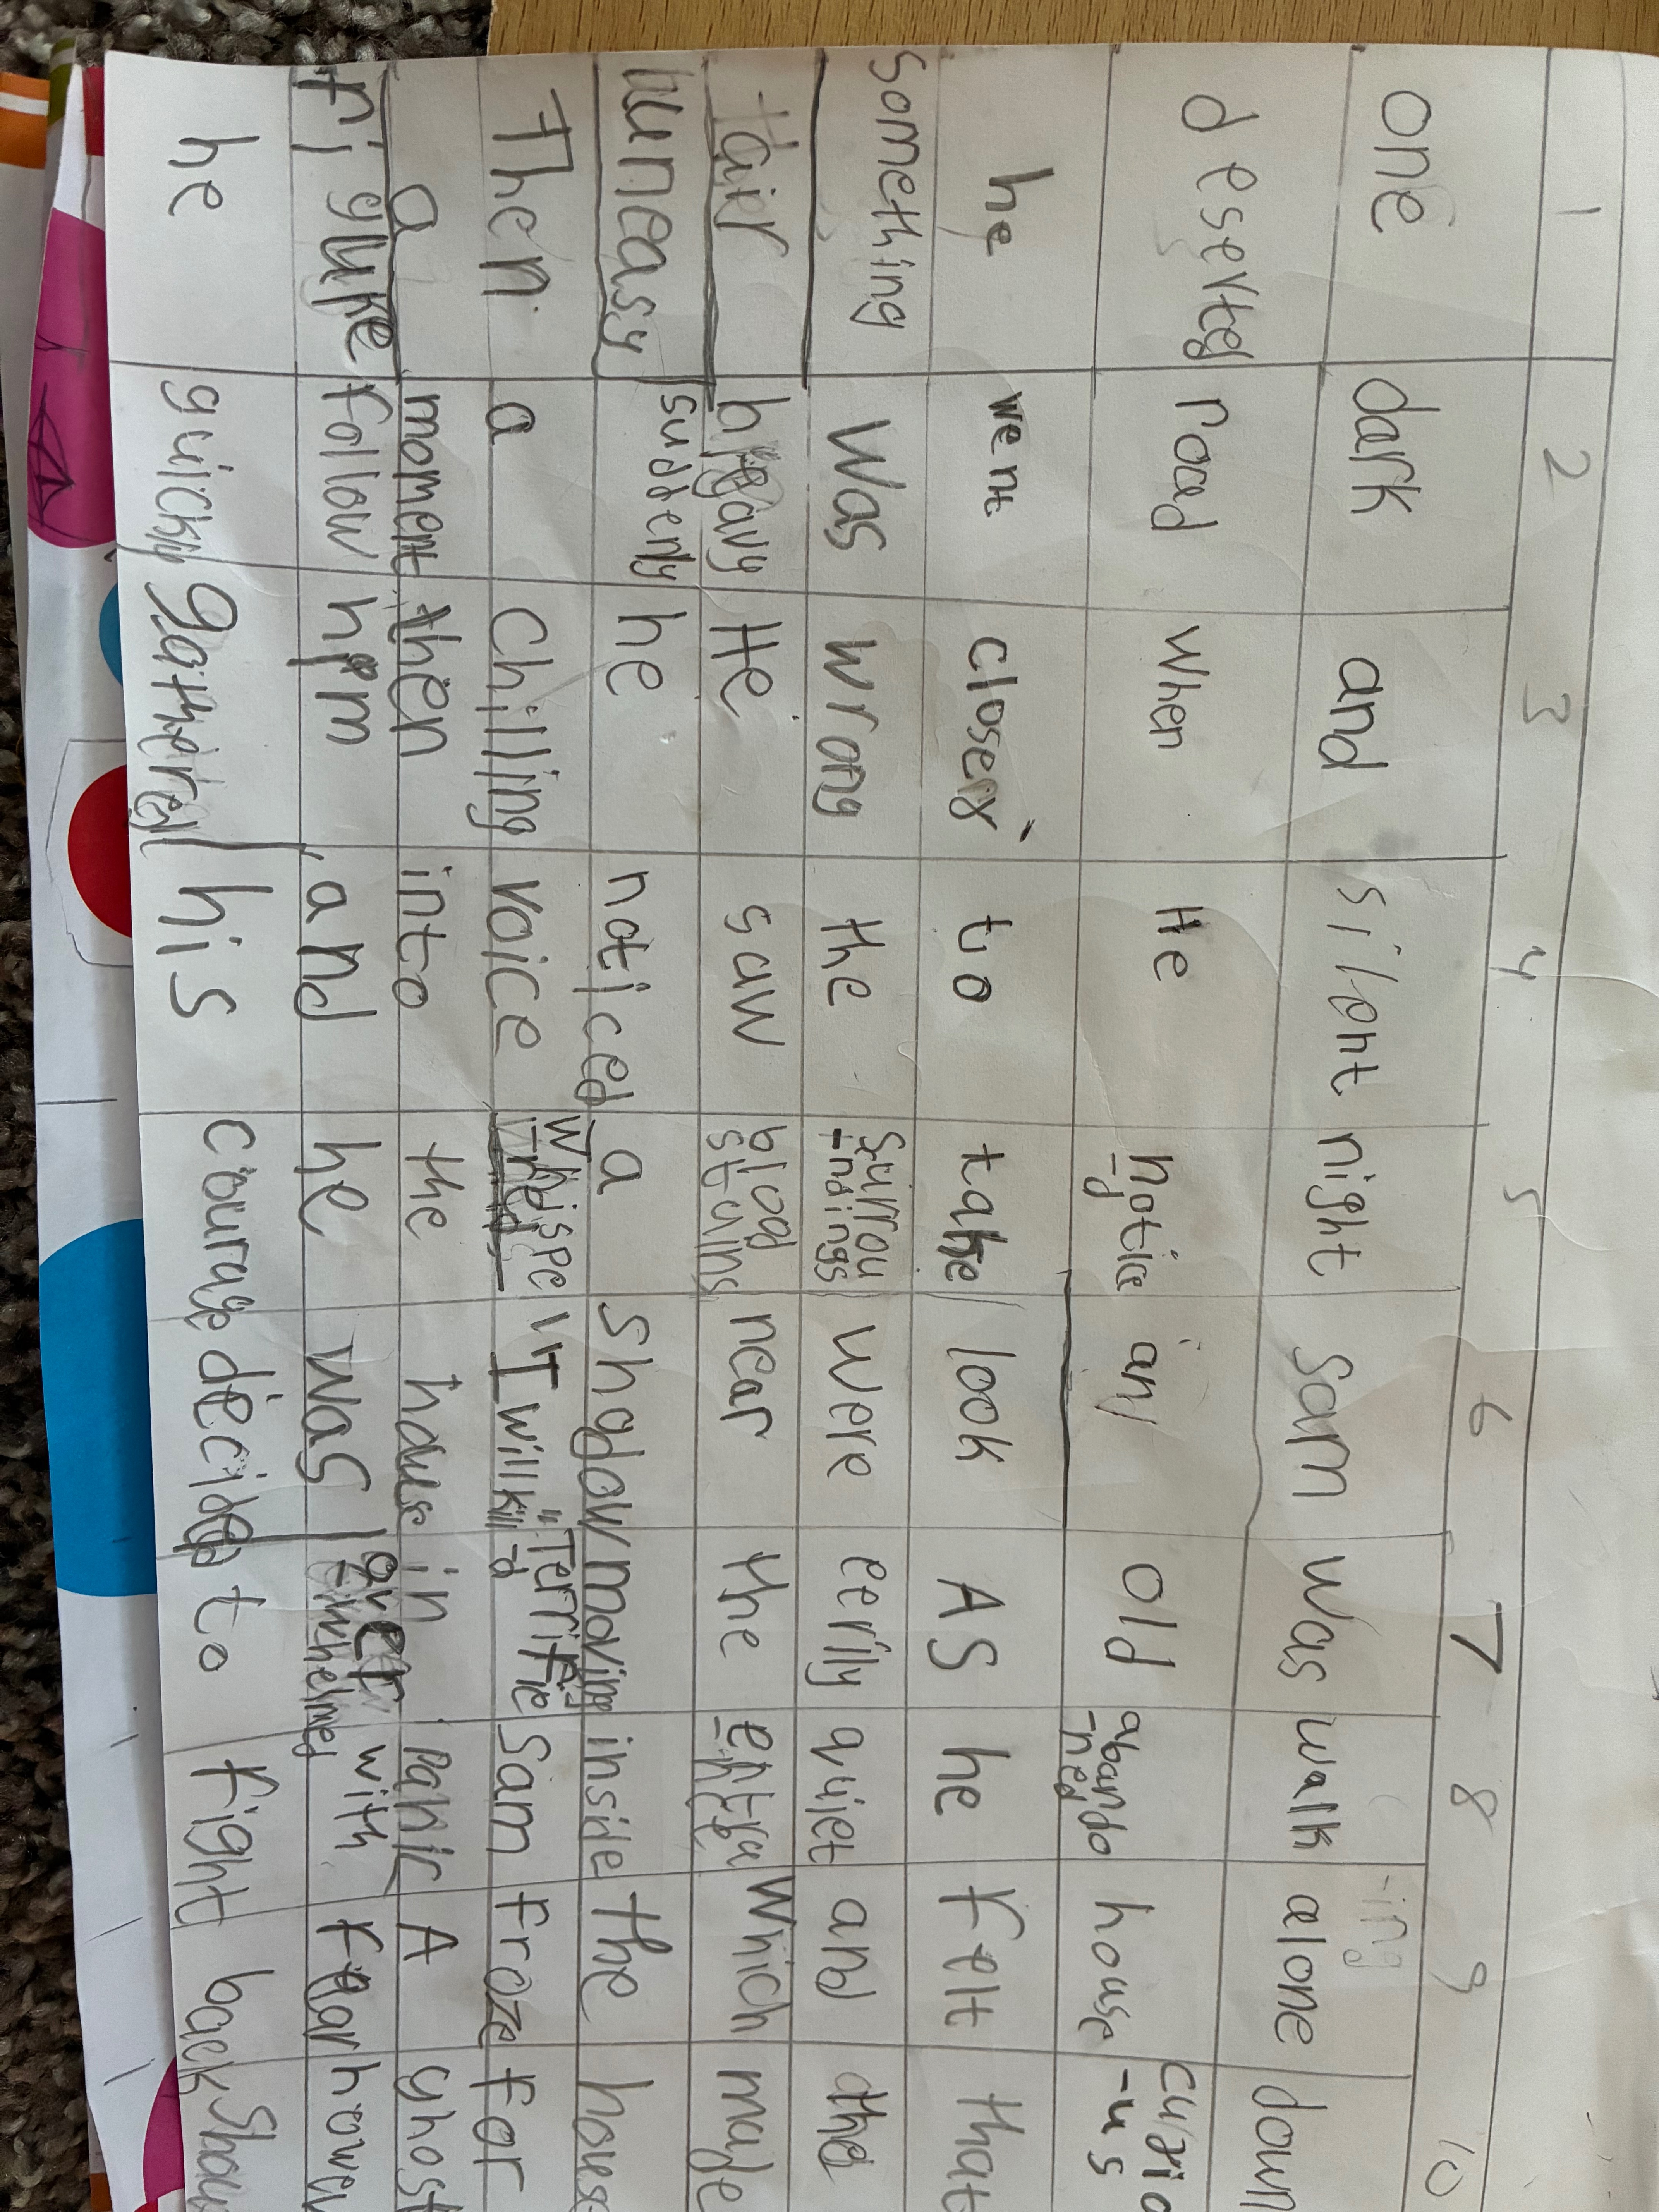 1 2 3 4 5 6 7 8 9 10
one dark and silent night sam was walk -ing alone down
deserted road when He notice -d an old abando -ned house curio -us
he went closer to take look AS he felt that
something was wrong the surrou -ndings were eerily quiet and the
air heavy He saw blood stains near the entra -nce which made
uneasy suddenly he noticed a shadow moving inside the house
Then a chilling voice whispe "I will kill" Terrified Sam froze for
a moment then into the house in panic A ghost
figure follow him, and he was over -whelmed with fear howev
he quickly gathered his courage decided to fight back Shou